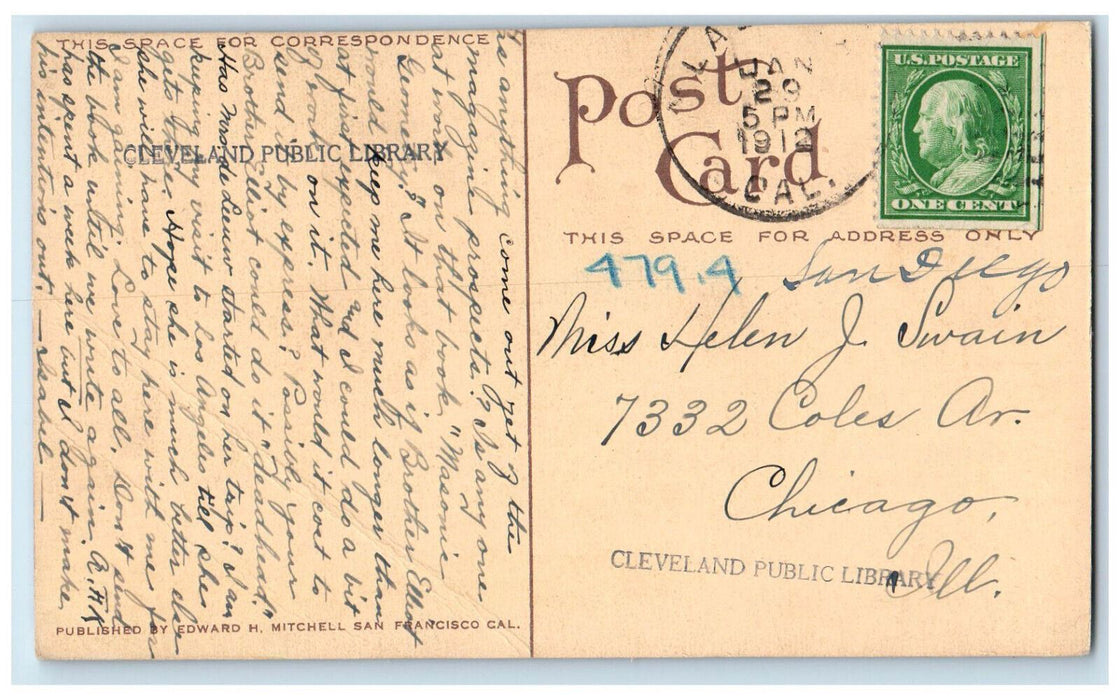 THIS SPACE FOR CORRESPONDENCE
Has anything come out yet of the
magazine prospects? Is any one
at work on that book, "Masonic
Geometry?" It looks as if Brother Elliot
would keep me here much longer than
at first expected and I could do a bit
of work on it. What would it cost to
send it by express? Possibly your
Brother Elliot could do it "deadhead."
Has Maude Leeuw started on her trip? I am
keeping my visit to Los Angeles till she
gets there. Hope she is much better else
she will have to stay here with me for
I am gaining. Love to all. Don't send
the book until we write again. A.F.K
has spent a week here but I don't make
his intentions out. — Isabel —
CLEVELAND PUBLIC LIBRARY
PUBLISHED BY EDWARD H. MITCHELL SAN FRANCISCO CAL.
Post
Card
JAN
29
5 PM
1912
CAL.
U.S. POSTAGE
ONE CENT
THIS SPACE FOR ADDRESS ONLY
479.4 San Diego
Miss Helen J. Swain
7332 Coles Av.
Chicago,
Ill.
CLEVELAND PUBLIC LIBRARY